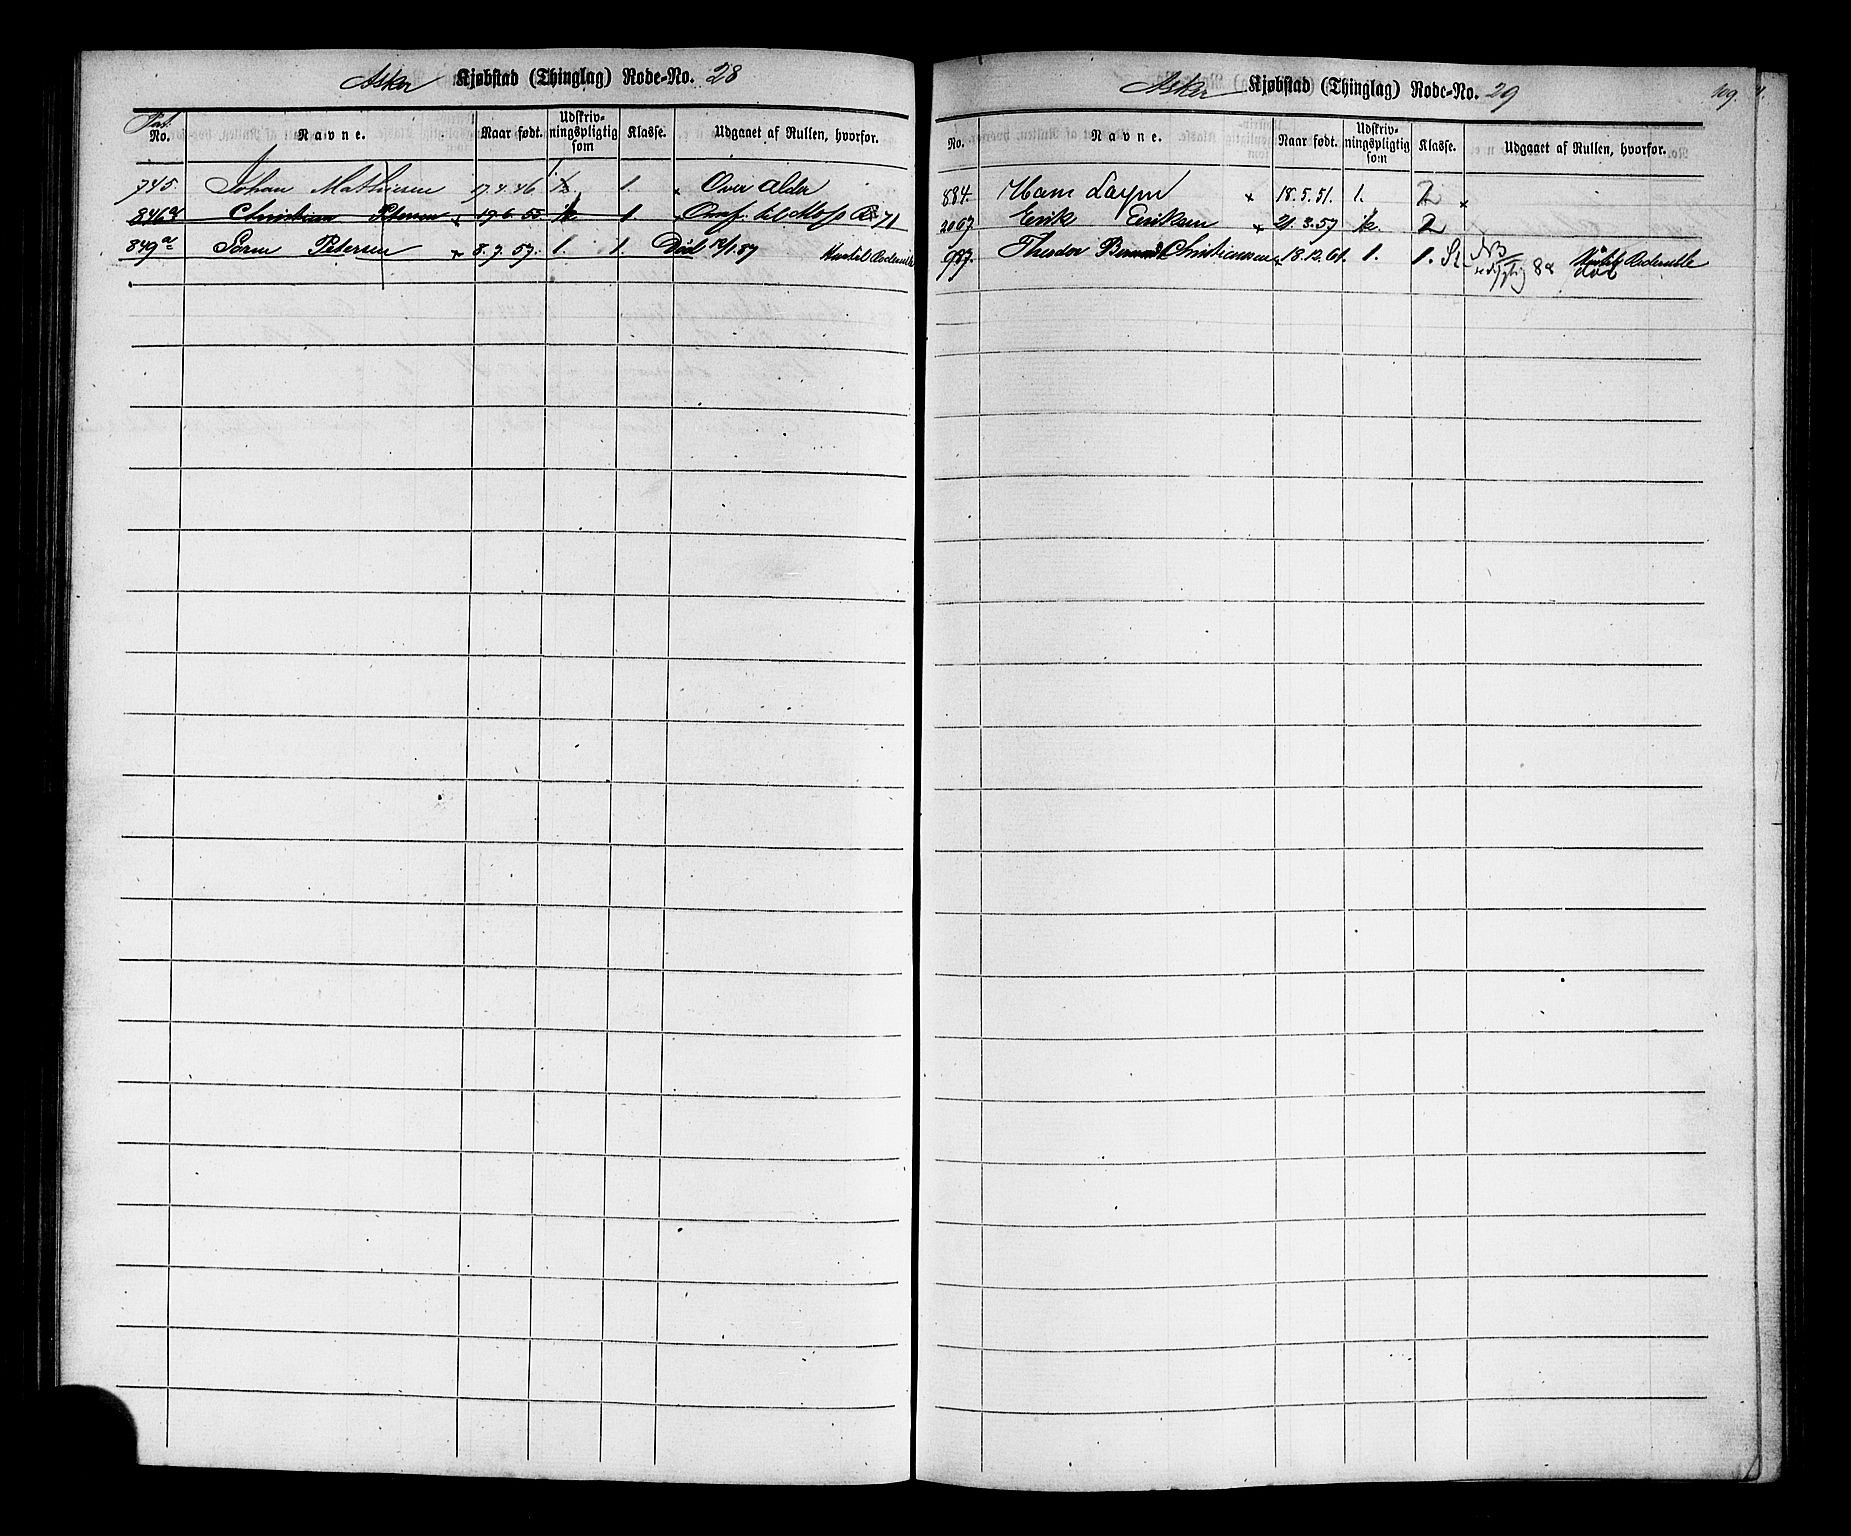 Asker Kjøbstad (Thinglag) Rode-No. 28
Pat. No. Navne. Naar født. Udskriv-ningspligtig som Klasse. Udgaaet af Rullen, hvorfor.
745. Johan Mathisen 17.4.46 1. Over alder
846a Christian Petersen 19.6.55 1. Overf. til Moss R 71
849a Søren Petersen 8.7.57. 1. 1. Død 12/1.87
Asker Kjøbstad (Thinglag) Rode-No. 29
109.
No. Navne. Naar født. Udskriv-ningspligtig som Klasse. Udgaaet af Rullen, hvorfor.
884. Hans 18.5.51. 1. 2
2067. Erik Eriksen 21.3.57 2
987. Theodor Bernndt Christiansen 18.12.61 1. 1. NB
død